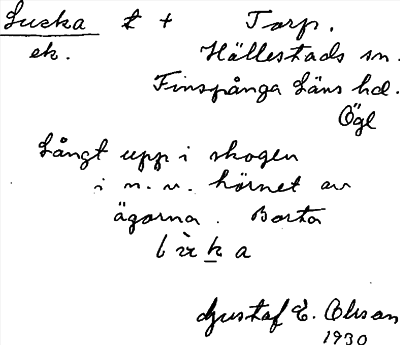 Lucka t + Torp.
ek. Hällestads sn.
Finspånga Läns hd.
Ögl
Långt upp i skogen
i n. v. hörnet av
ägorna. Borta
Gustaf E. Olsson
1930